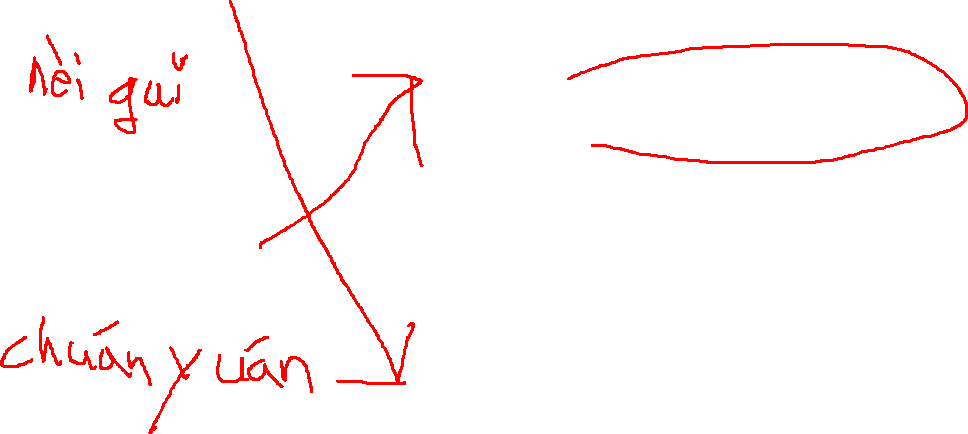 nèi guǐ
chuányuán